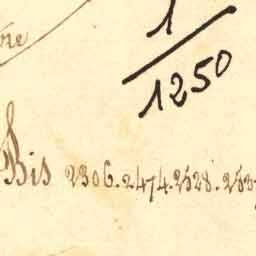 1/1250
Bis 2306.2474.2528.253